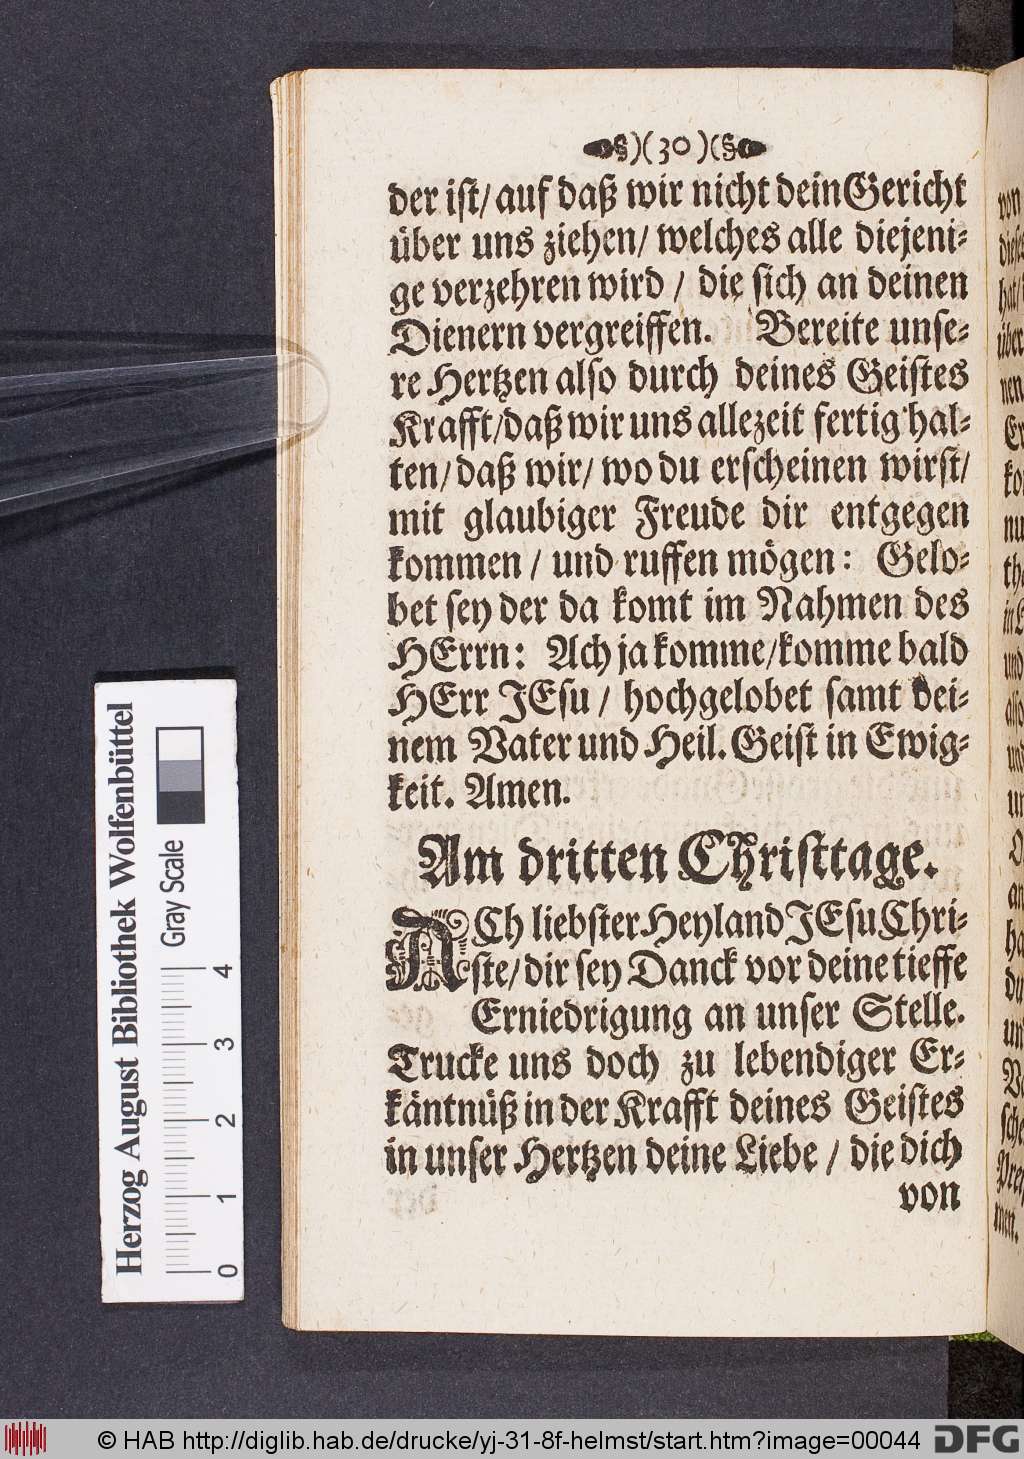 §)(30)(§
der ist/ auf daß wir nicht dein Gericht
über uns ziehen/ welches alle diejeni-
ge verzehren wird / die sich an deinen
Dienern vergreiffen. Bereite unse-
re Hertzen also durch deines Geistes
Krafft/ daß wir uns allezeit fertig hal-
ten/ daß wir/ wo du erscheinen wirst/
mit glaubiger Freude dir entgegen
kommen / und ruffen mögen: Gelo-
bet sey der da komt im Nahmen des
HErrn: Ach ja komme/ komme bald
HErr JEsu / hochgelobet samt dei-
nem Vater und Heil. Geist in Ewig-
keit. Amen.
Am dritten Christtage.
ACh liebster Heyland JEsu Chri-
ste/ dir sey Danck vor deine tieffe
Erniedrigung an unser Stelle.
Trucke uns doch zu lebendiger Er-
käntnüß in der Krafft deines Geistes
in unser Hertzen deine Liebe / die dich
von
Herzog August Bibliothek Wolfenbüttel
Gray Scale
0 1 2 3 4
© HAB http://diglib.hab.de/drucke/yj-31-8f-helmst/start.htm?image=00044
DFG